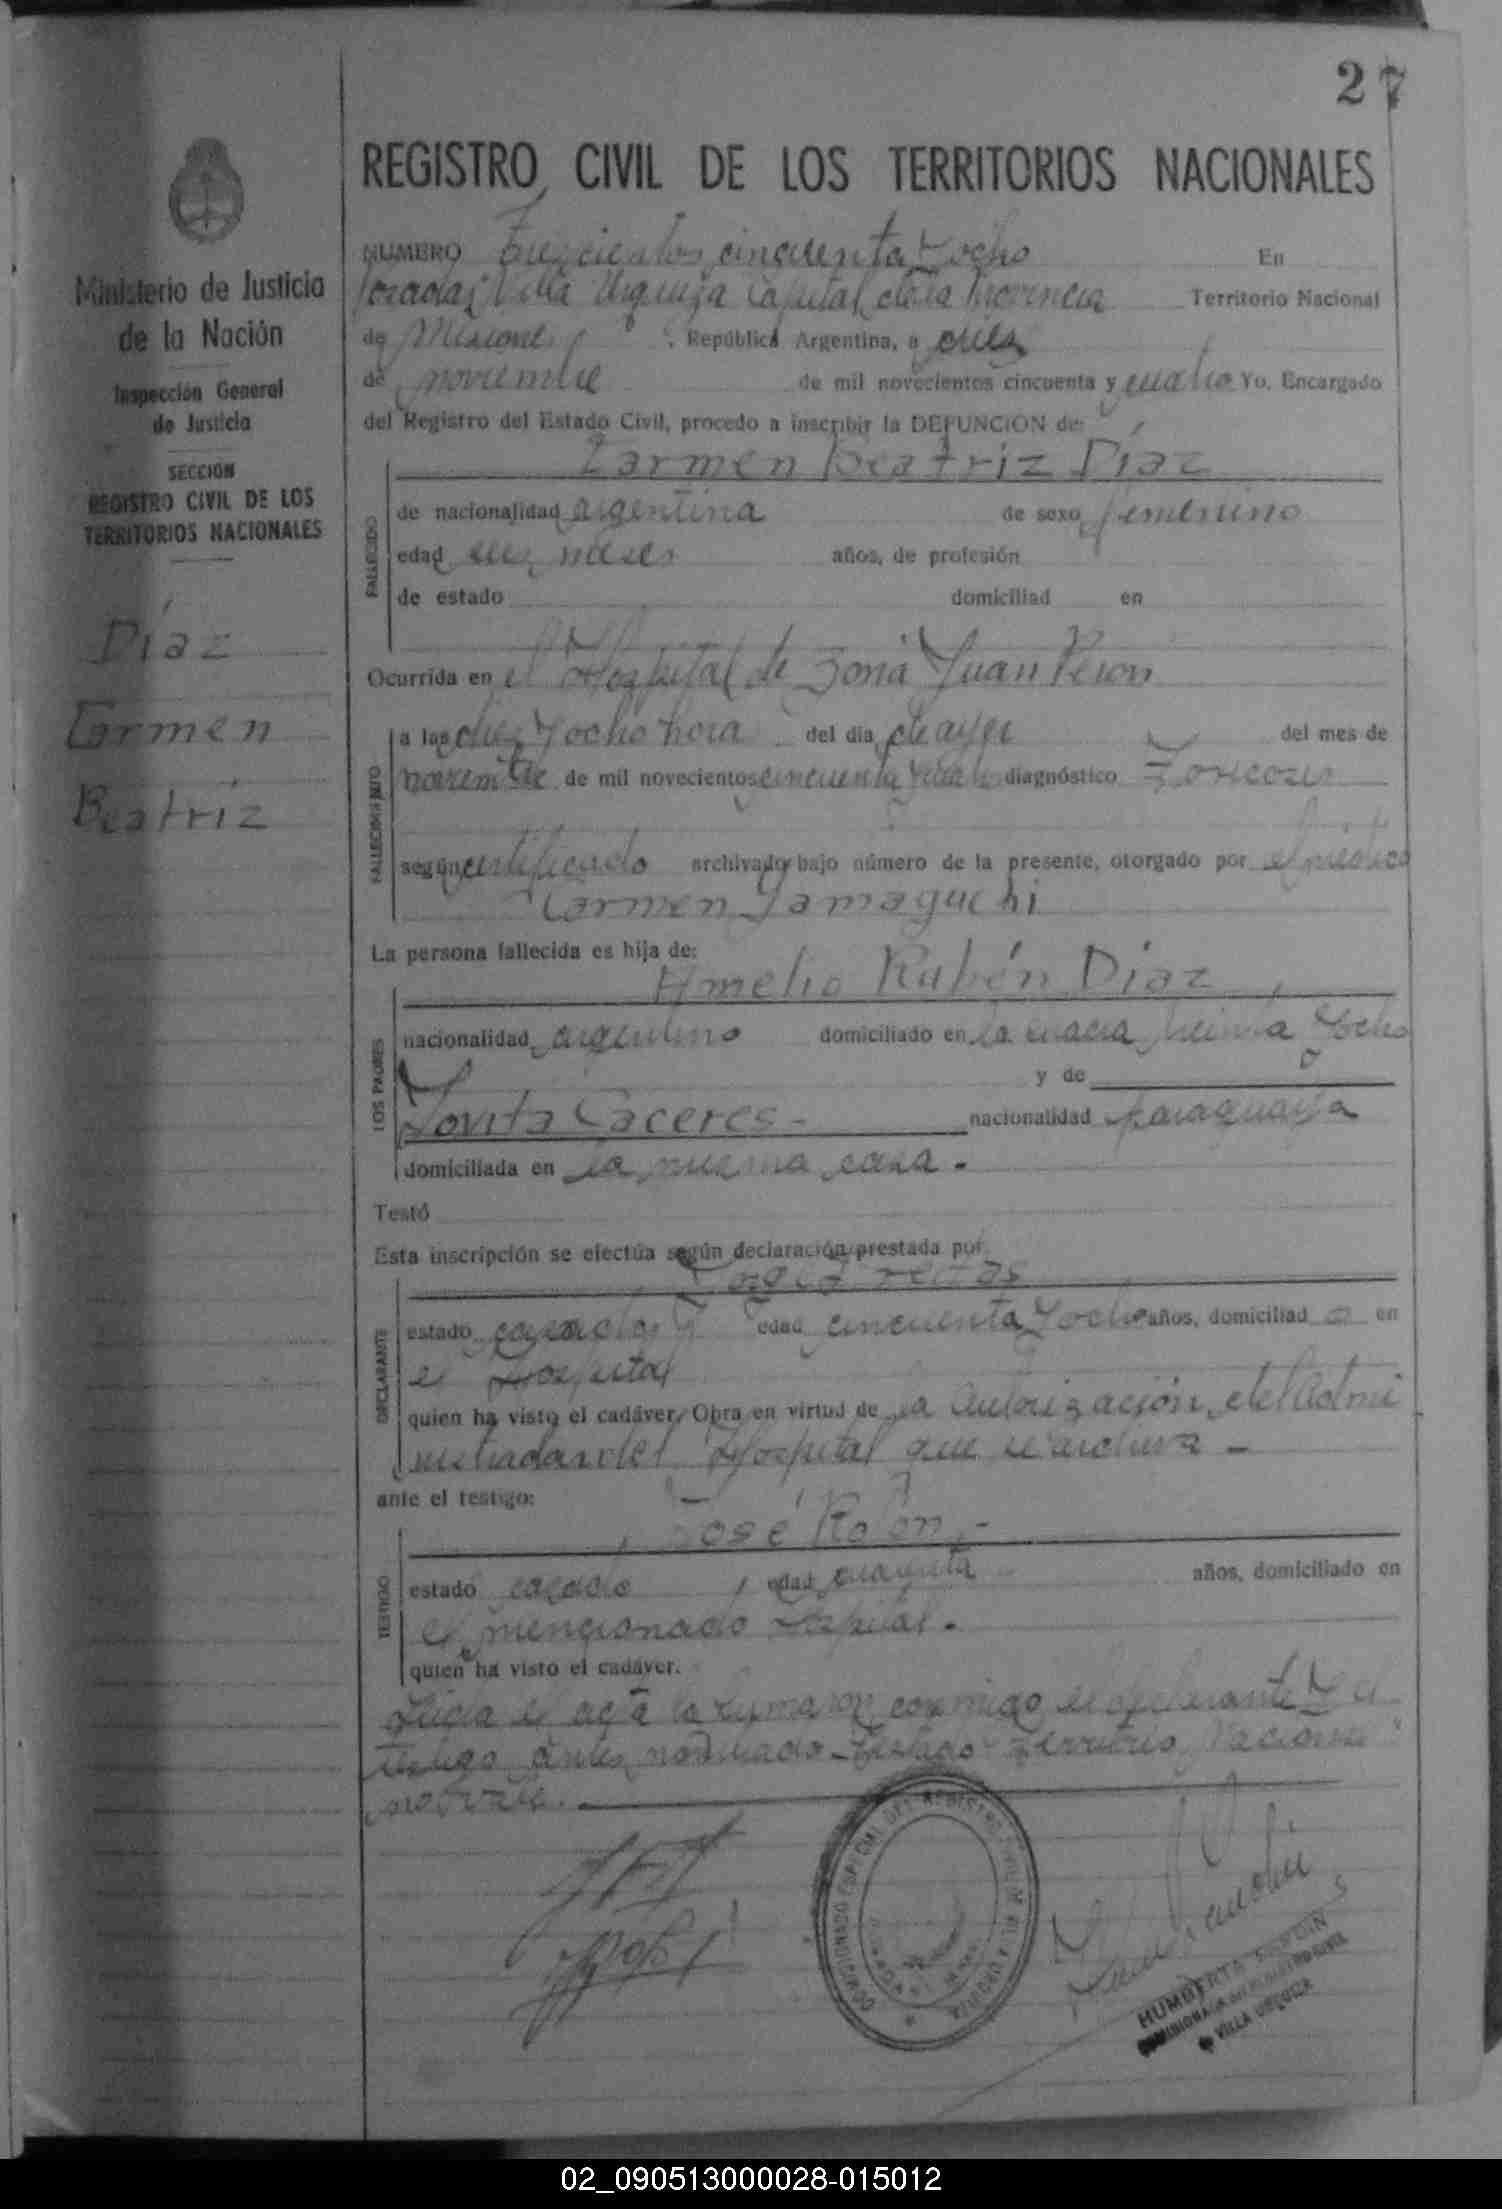 27
REGISTRO CIVIL DE LOS TERRITORIOS NACIONALES
Ministerio de Justicia
de la Nación
Inspección General
de Justicia
SECCION
REGISTRO CIVIL DE LOS
TERRITORIOS NACIONALES
Díaz
Carmen
Beatríz
NUMERO Trescientos cincuenta y ocho En
Posadas Villa Urquiza Capital de la Provincia Territorio Nacional
de Misiones, República Argentina, a diez
de noviembre de mil novecientos cincuenta y cuatro Yo, Encargado
del Registro del Estado Civil, procedo a inscribir la DEFUNCION de:
Carmen Beatriz Díaz
FALLECIDO
de nacionalidad argentina de sexo femenino
edad meses años, de profesión
de estado domiciliad en
Ocurrida en el Hospital de Zona Juan Perón
FALLECIMIENTO
a las diez y ocho hora del día de ayer del mes de
noviembre de mil novecientos cincuenta y cuatro diagnóstico Toxicosis
según certificado archivado bajo número de la presente, otorgado por el médico
Carmen Yamaguchi
La persona fallecida es hija de:
Amelio Rubén Díaz,
LOS PADRES
nacionalidad argentino domiciliado en la chacra treinta y ocho
y de
Jovita Caceres - nacionalidad paraguaya
domiciliada en la misma casa -
Testó
Esta inscripción se efectúa según declaración prestada por
DECLARANTE
estado casado edad cincuenta y ocho años, domiciliad o en
el Hospital
quien ha visto el cadáver. Obra en virtud de la autorización del admi
nistrador del Hospital que se archiva -
ante el testigo:
José Rolón -
TESTIGO
estado casado, edad cuarenta años, domiciliado en
el mencionado Hospital -
quien ha visto el cadáver.
Leída el acta la firmaron conmigo el declarante y el
testigo antes nombrado - Testado: Territorio Nacional
no vale.
COMISIONADO ESPECIAL DEL REGISTRO CIVIL
VILLA URQUIZA